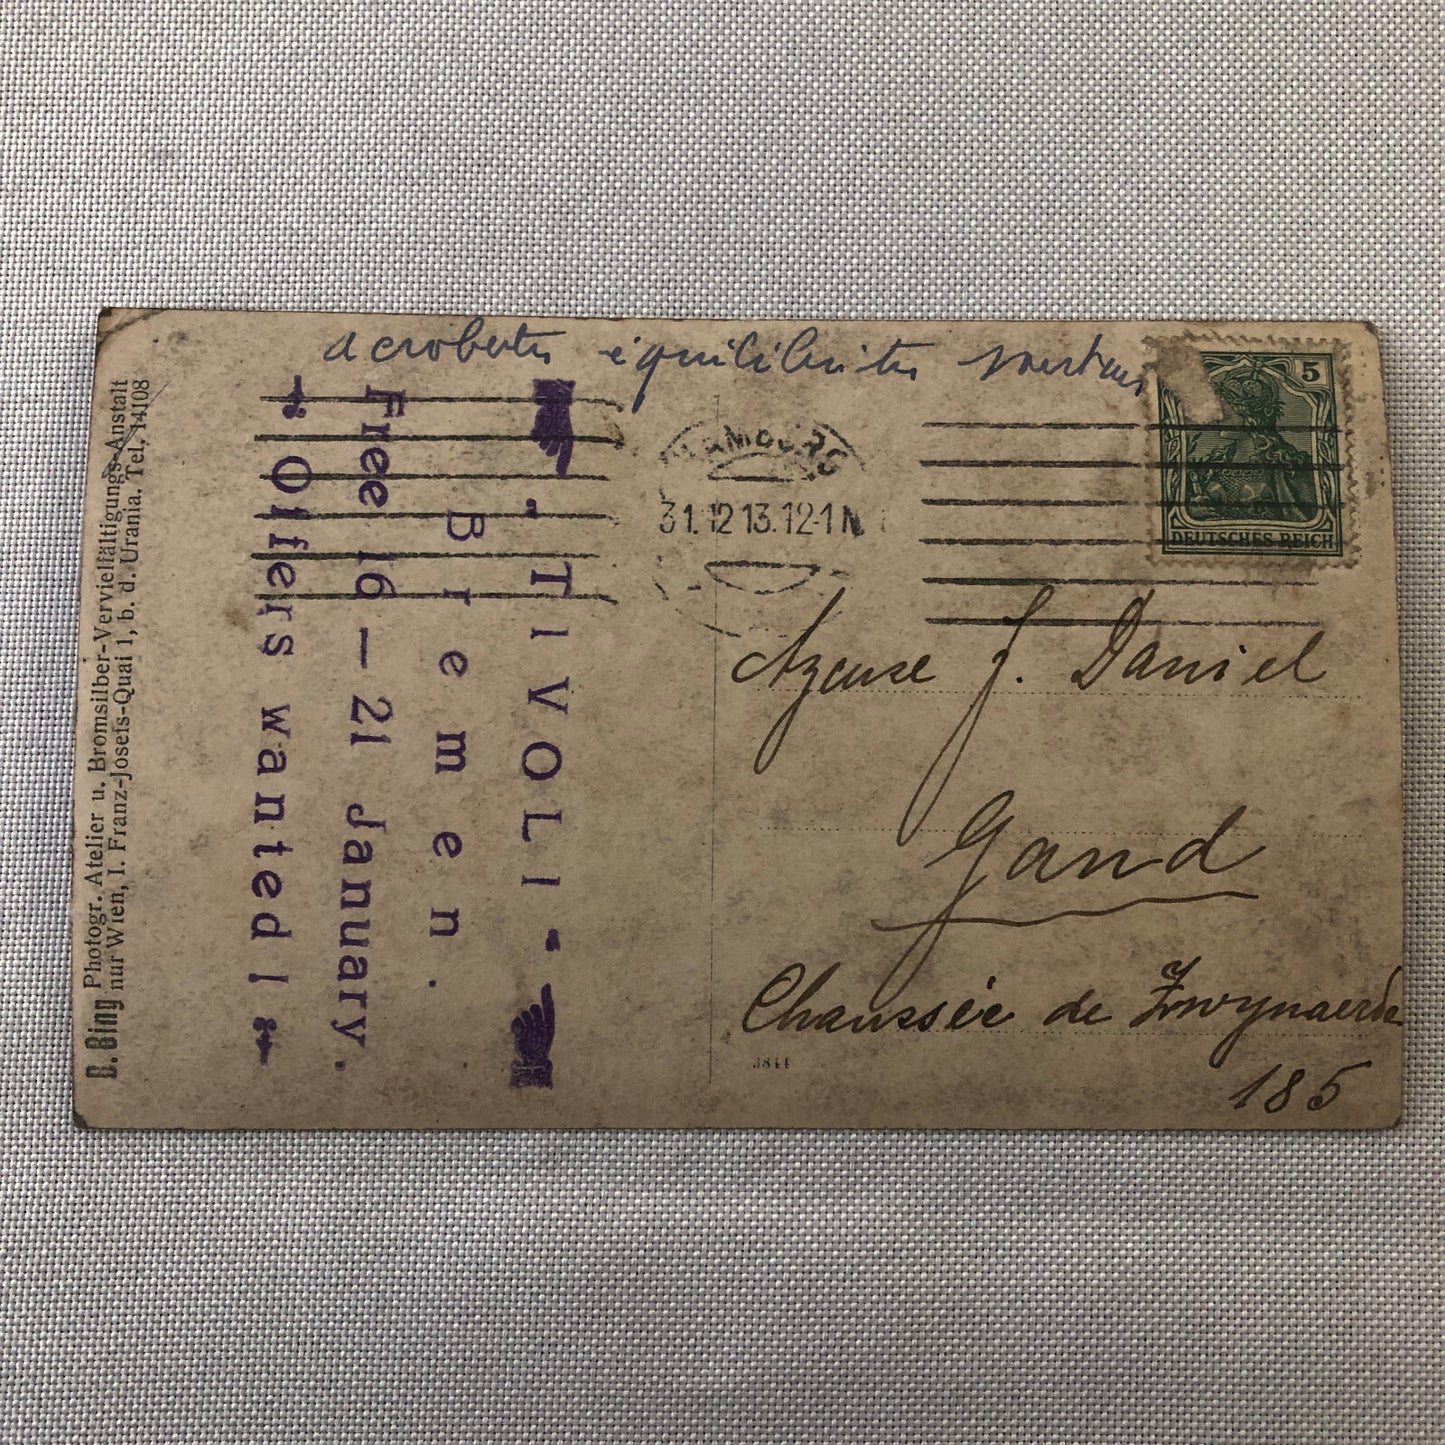 acrobates équilibristes
B. Bing Photogr. Atelier u. Bromsilber-Vervielfältigungs-Anstalt
nur Wien, I. Franz-Josefs-Quai 1, b. d. Urania. Tel. 14108
„TIVOLI“
Bremen.
Free 16—21 January.
Offers wanted!
HAMBURG
31.12.13.12-1N
5
DEUTSCHES REICH
J. Daniel
Gand
Chaussée de Zwynaerde
185
3841